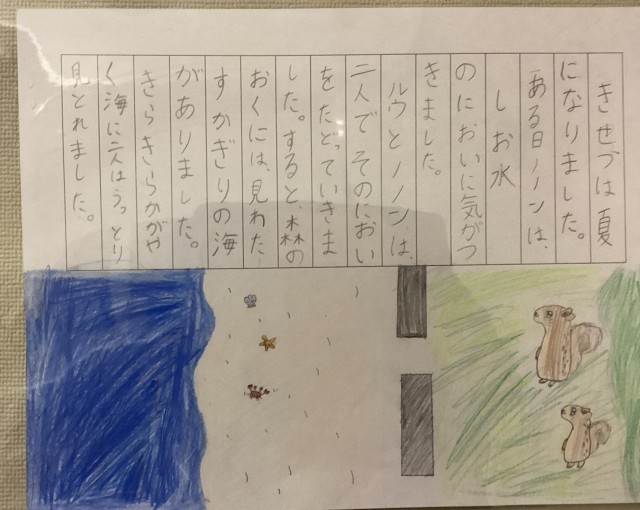 きせつは夏
になりました。
ある日ノノンは、
しお水
のにおいに気がつ
きました。
ルウとノノンは、
二人でそのにおい
をたどっていきま
した。すると、森の
おくには、見わた
すかぎりの海
がありました。
きらきらかがや
く海に二人はうっとり
見とれました。